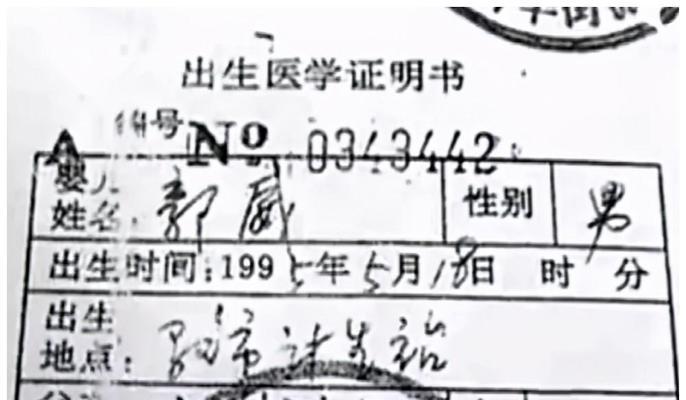 出生医学证明书
编号 No 0343442
婴儿姓名: 郭威 性别 男
出生时间:1995年5月18日 时 分
出生地点: 计生站